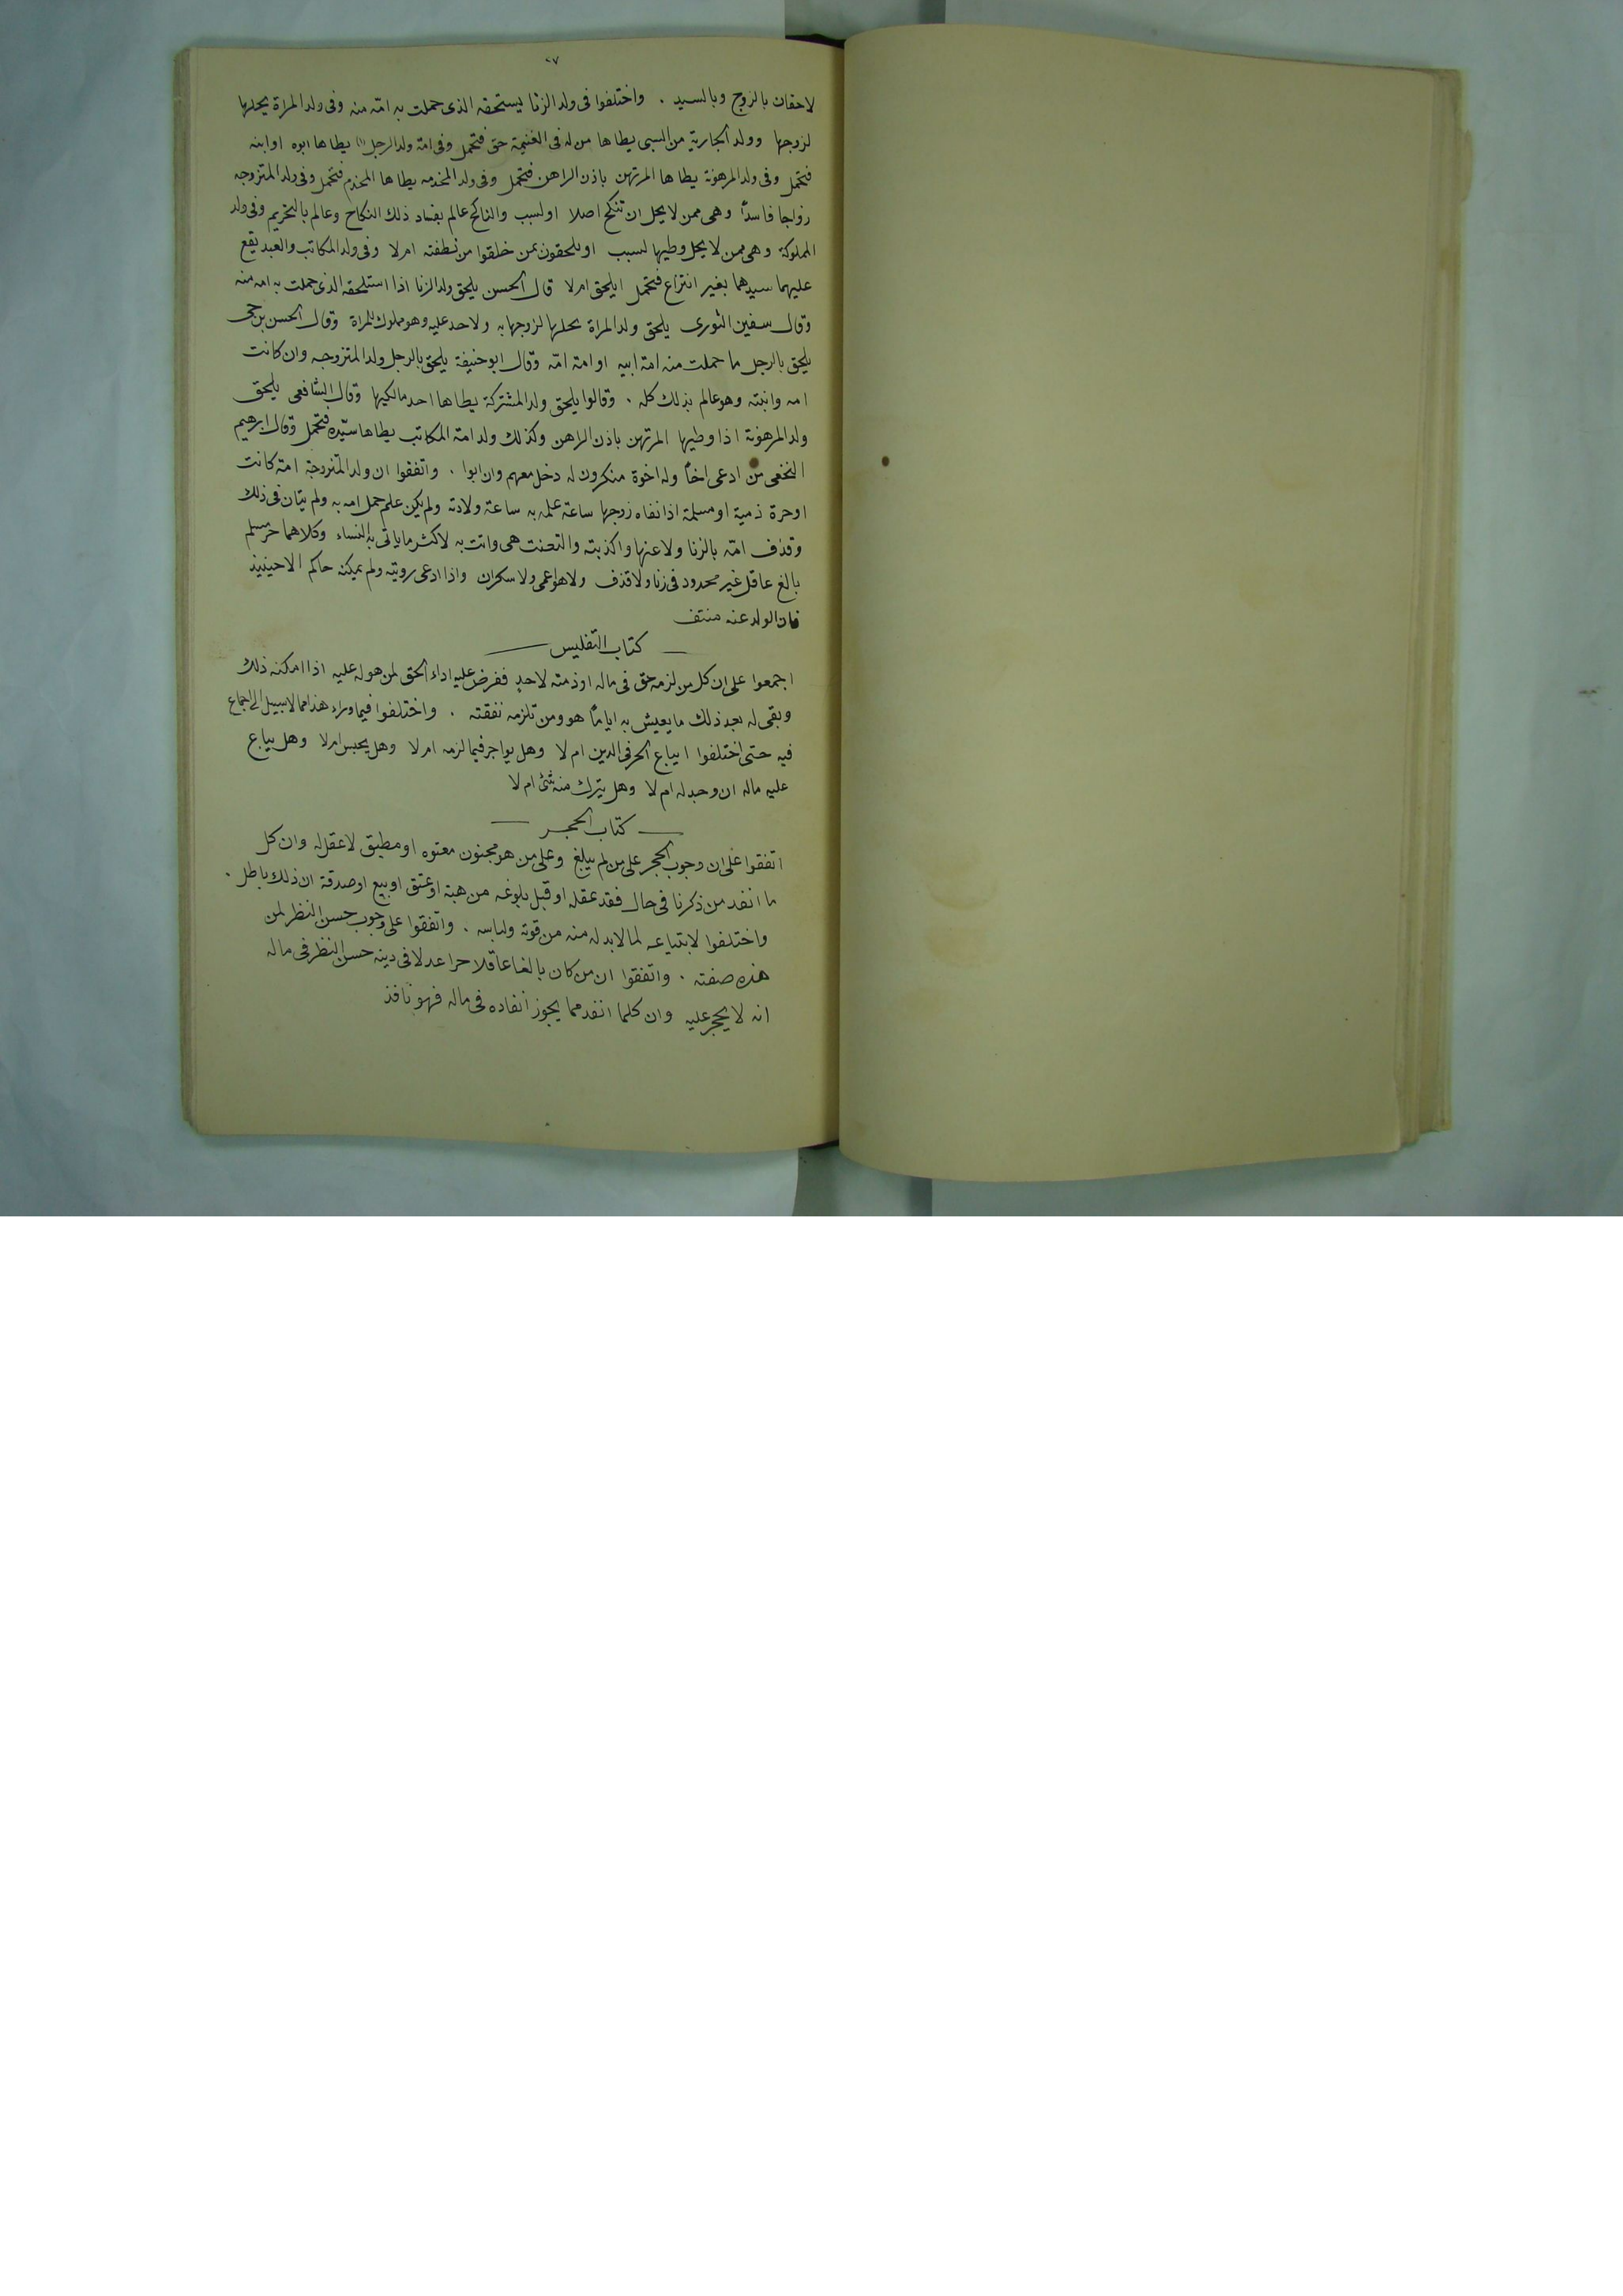 ٠٧
لاحقان بالزوج وبالسيد . واختلفوا فى ولد الزنا يستحقه الذى حملت به امّه منه وفى ولد المراة يحلها
لزوجها وولد الجارية من السبى يطاها من له فى الغنيمة حق فتحمل وفى امة ولد الرجل (١) يطاها ابوه او ابنه
فتحمل وفى ولد المرهونة يطاها المرتهن باذن الراهن فتحمل وفى ولد المخدمه يطاها المخدم فتحمل وفى ولد المتزوجه
زواجا فاسدًا وهى ممن لا يحل ان تنكح اصلا او لسبب والناكح عالم بفساد ذلك النكاح وعالم بالتحريم وفى ولد
المملوكة وهى ممن لا يحل وطيها لسبب او يلحقون بمن خلقوا من نطفته ام لا وفى ولد المكاتب والعبد يقع
عليهما سيدهما بغير انتزاع فتحمل ايلحق ام لا قال الحسن يلحق ولد الزنا اذا استلحقه الذى حملت به امه منه
وقال سفين الثورى يلحق ولد المراة تحلها لزوجها به ولا حد عليه وهو مملوك للمراة وقال الحسن بن حى
يلحق بالرجل ما حملت منه امة ابيه او امة امّه وقال ابو حنيفة يلحق بالرجل ولد المتزوجه وان كانت
امه وابنته وهو عالم بذلك كله . وقالوا يلحق ولد المشتركة يطاها احد مالكيها وقال الشافعى يلحق
ولد المرهونة اذا وطيها المرتهن باذن الراهن وكذلك ولد امة المكاتب يطاها سيّده فتحمل وقال ابرهيم
النخعى من ادعى اخًا وله اخوة منكرون له دخل معهم وان ابوا . واتفقوا ان ولد المتزوجة امة كانت
او حرة ذمية او مسلمة اذا نفاه زوجها ساعة علمه به ساعة ولادته ولم يكن علم حمل امه به ولم يتان فى ذلك
وقذف امّه بالزنا ولاعنها واكذبته والتعنت هى واتت به لاكثر ما ياتى به النساء وكلاهما حر مسلم
بالغ عاقل غير محدود فى زنا ولا قذف ولا هو اعمى ولا سكران واذا ادعى رويته ولم يمكنه حاكم الا حينيذ
فان الولد عنه منتف
كتاب التفليس
اجمعوا على ان كل من لزمه حق فى ماله او ذمته لاحدٍ ففرض عليه اداء الحق لمن هو له عليه اذا امكنه ذلك
وبقى له بعد ذلك ما يعيش به ايامًا هو ومن تلزمه نفقته . واختلفوا فيما وراء هذا مما لا سبيل الى اجماع
فيه حتى اختلفوا ايباع الحر فى الدين ام لا وهل يواجر فيما لزمه ام لا وهل يحبس ام لا وهل يباع
عليه ماله ان وجد له ام لا وهل يترك منه شئ ام لا
كتاب الحجر
اتفقوا على ان وجوب الحجر على من لم يبلغ وعلى من هو مجنون معتوه او مطبق لا عقل له وان كل
ما انفد من ذكرنا فى حال فقد عقله او قبل بلوغه من هبة او عتق او بيع او صدقة ان ذلك باطل .
واختلفوا لابتياعه لما لا بد له منه من قوته ولباسه . واتفقوا على وجوب حسن النظر لمن
هذه صفته . واتفقوا ان من كان بالغا عاقلا حرا عدلا فى دينه حسن النظر فى ماله
انه لا يحجر عليه وان كلما انفد مما يجوز انفاده فى ماله فهو نافذ